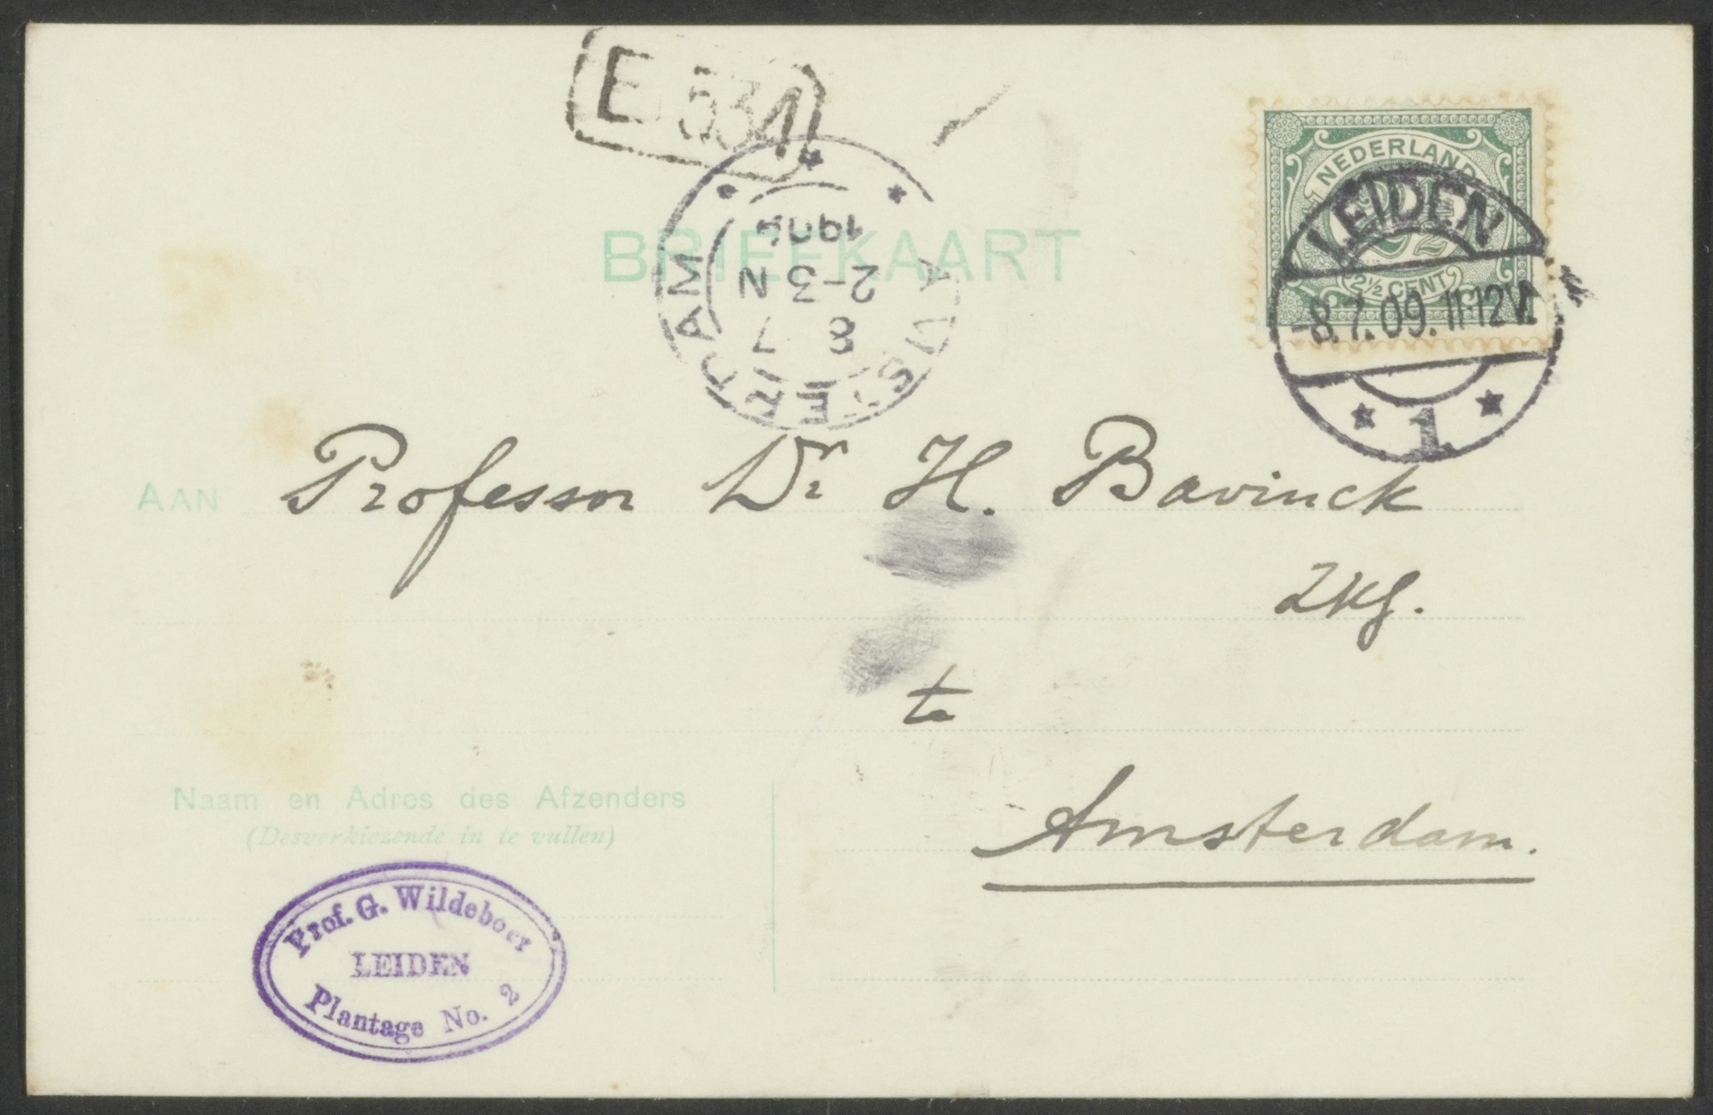 E 531
NEDERLAND
2½
2½ CENT
LEIDEN
-8.7.09. 11-12V.
1
AMSTERDAM
8 7
2-3 N
BRIEFKAART
AAN Professor Dr H. Bavinck
te
Amsterdam.
Naam en Adres des Afzenders
(Desverkiezende in te vullen)
Prof. G. Wildeboer
LEIDEN
Plantage No. 2